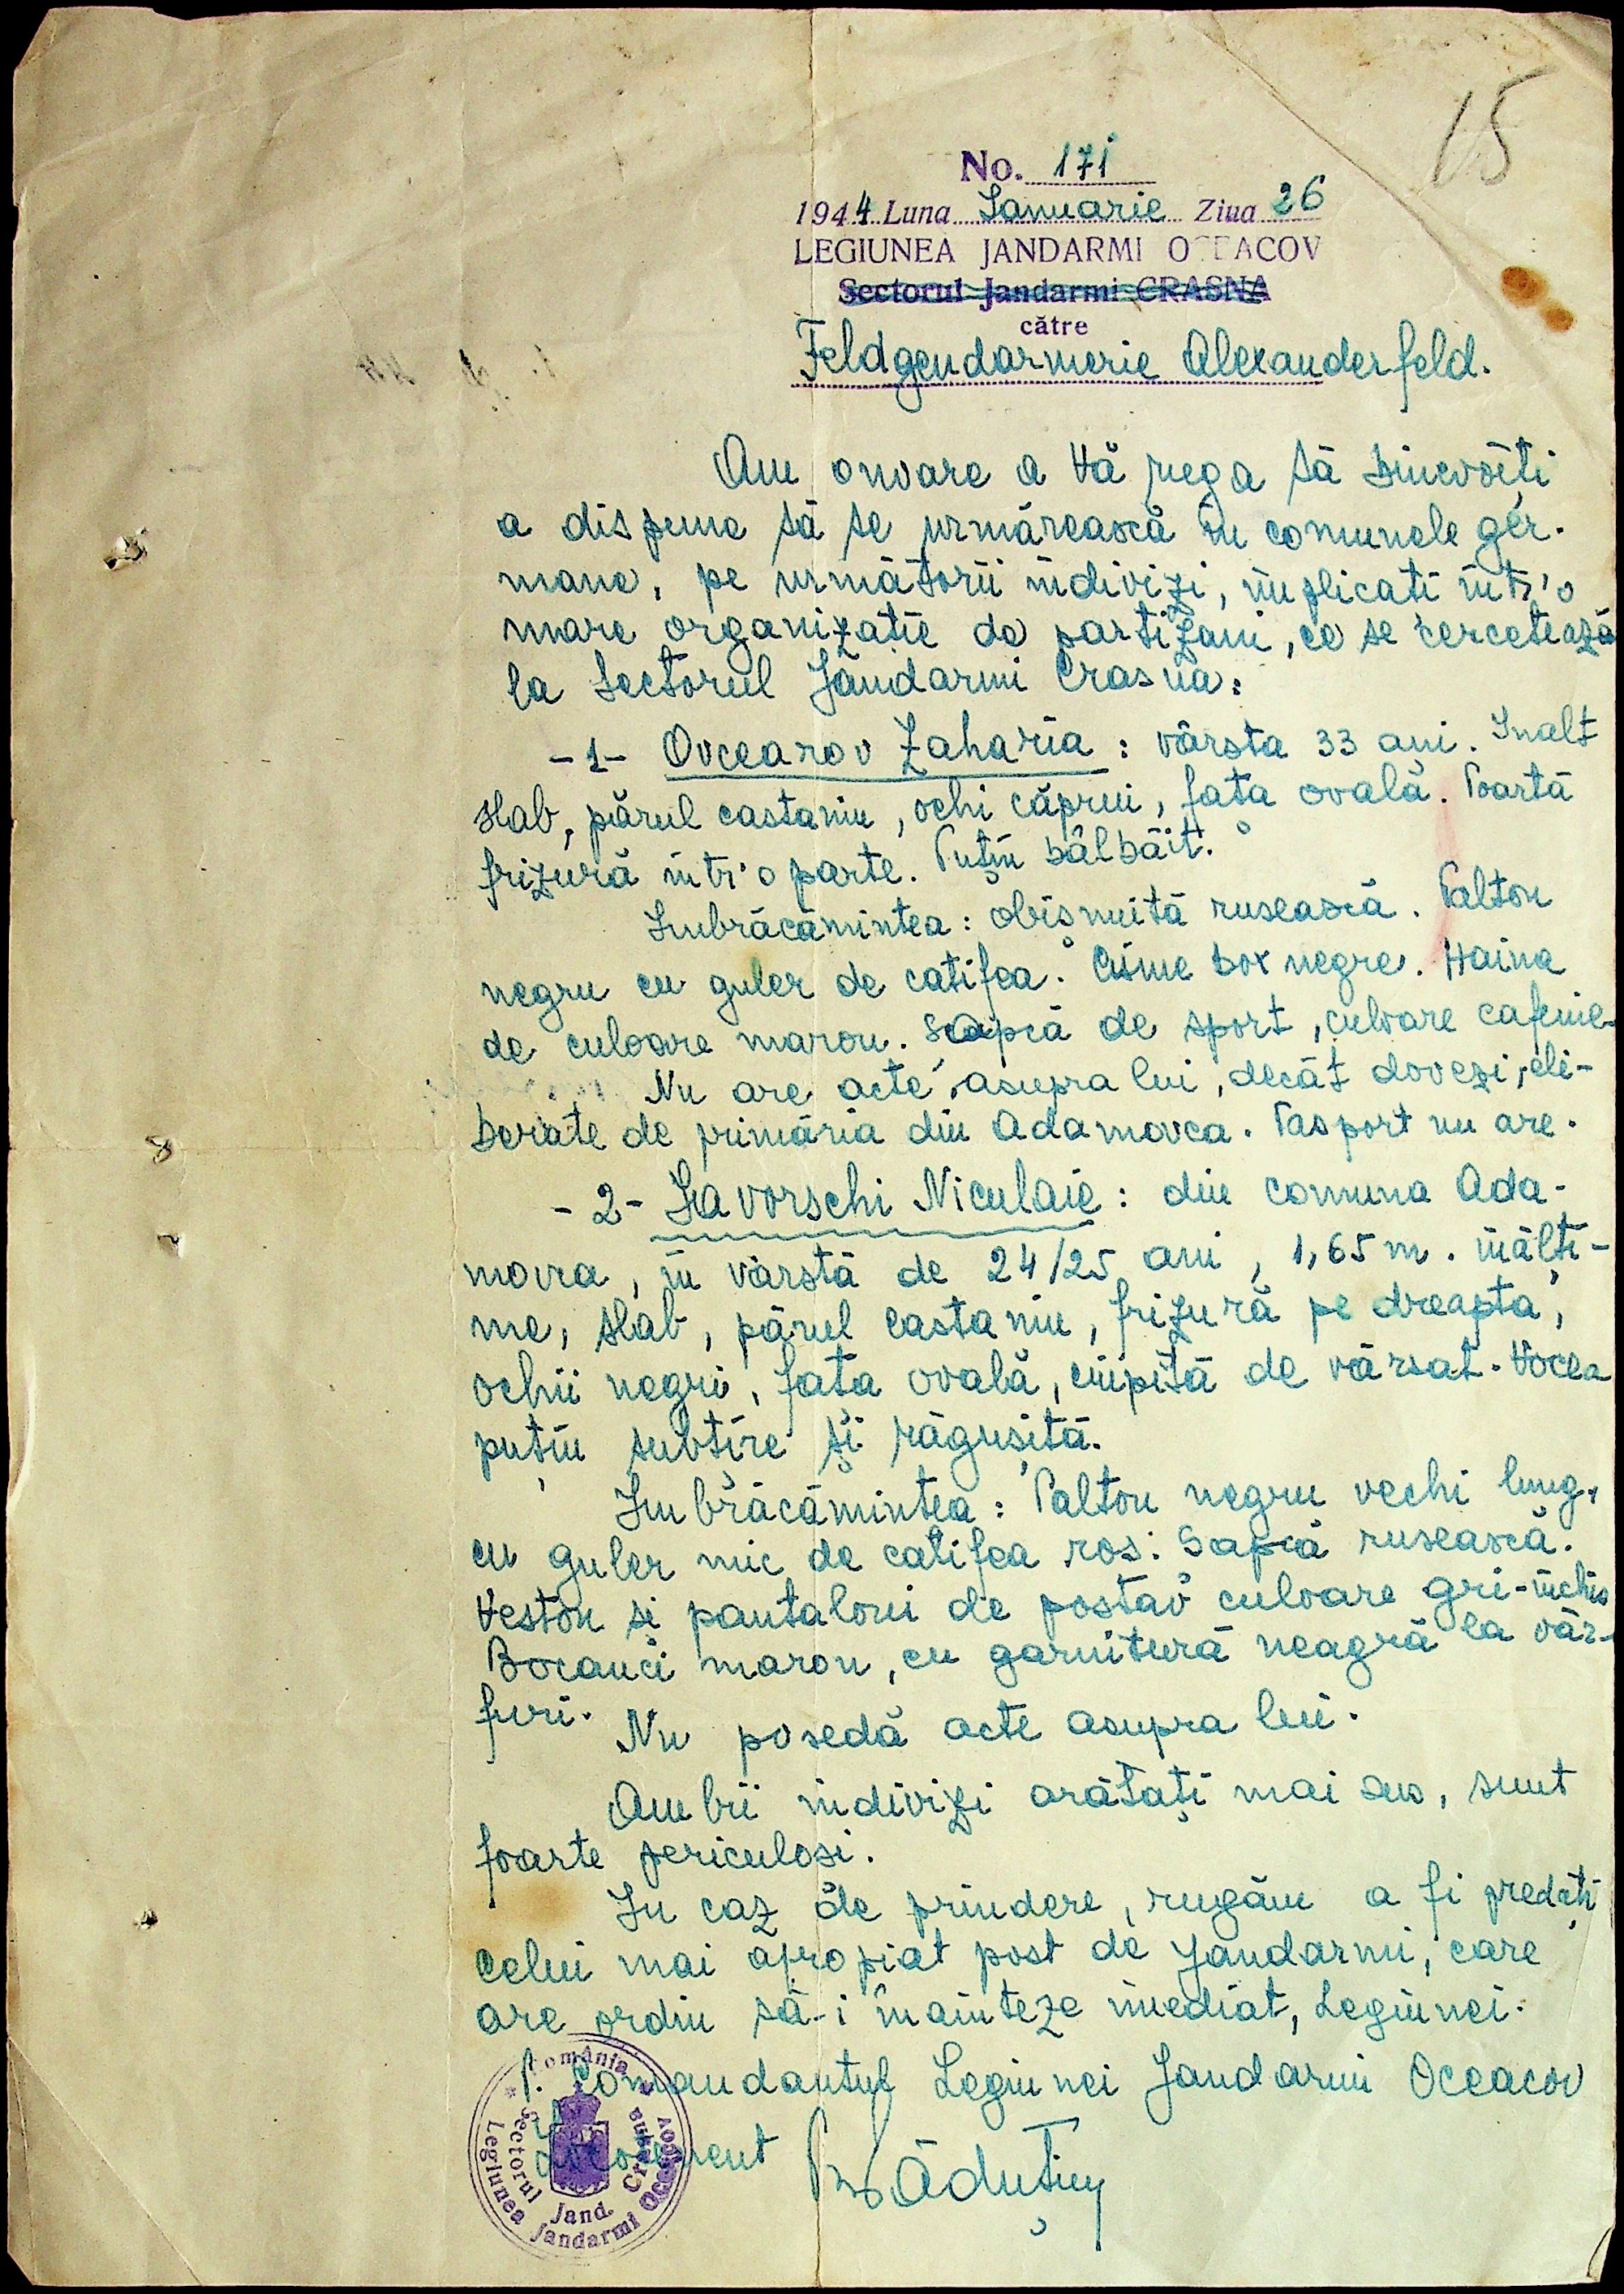 15
No. 171
1944 Luna Ianuarie Ziua 26
LEGIUNEA JANDARMI OCEACOV
Sectorul Jandarmi CRASNA
către
Feldgendarmerie Alexanderfeld.
Am onoare a Vă ruga să binevoiți
a dispune să se urmărească în comunele ger-
mane, pe următorii indivizi, implicati într'o
mare organizație de partizani, ce se cercetează
la Sectorul Jandarmi Crasna:
-1- Ovcearov Zaharia: vârsta 33 ani. Inalt
slab, părul castaniu, ochi căprui, fata ovală. Poartă
frizură intr'o parte. Puțin bâlbâit.
Imbrăcămintea: obișnuită rusească. Palton
negru cu guler de catifea. Cisme box negre. Haina
de culoare maron. Sapcă de sport, culoare cafenie.
Nu are acte asupra lui, decât dovezi, eli-
berate de primăria din Adamovca. Pasport nu are.
-2- Iavorschi Niculaie: din comuna Ada-
movca, în vârstă de 24/25 ani, 1,65 m. înălți-
me, slab, părul castaniu, frizură pe dreapta,
ochii negri, fata ovală, ciupită de vărsat. Vocea
puțin subtire și răgușită.
Imbrăcămintea: Palton negru vechi lung,
cu guler mic de catifea ros. Sapcă rusească.
Veston si pantaloni de postav culoare gri-închis
Bocanci maron, cu garnitură neagră la vâr-
furi.
Nu posedă acte asupra lui.
Ambii indivizi arătați mai sus, sunt
foarte periculosi.
In caz de prindere, rugăm a fi predați
celui mai apropiat post de jandarmi, care
are ordin să-i înainteze imediat, Legiunei.
p. Comandantul Legiunei Jandarmi Oceacov
România
Sectorul Jand. Crasna
Legiunea Jandarmi Oceacov